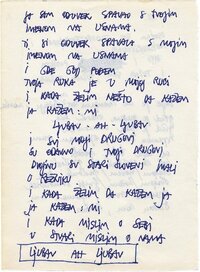 JA SAM ČOVJEK SPAVAO S TVOJIM
IMENOM NA USNAMA.
TI SI ČOVJEK SPAVALA S MOJIM
IMENOM NA USNAMA
I GDJE GOD POĐEM
TVOJA RUKA JE U MOJOJ RUCI
I KADA ŽELIM NEŠTO DA KAŽEM
JA KAŽEM: MI
LJUBAV - AH - LJUBAV
I SVI MOJI DRUGOVI
SU ODAVNO I TVOJI DRUGOVI
DIVIMO SU STARI SLOVENI IMALI
REŽNIKU
I KADA ŽELIM DA KAŽEM JA
JA KAŽEM: MI
I KADA MISLIM O SEBI
U STVARI MISLIM O NAMA
LJUBAV AH LJUBAV